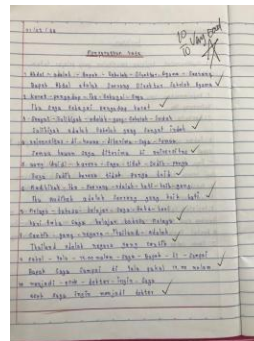 10
10 Very Good
1. Abdul - adalah - Bapak - Sekolah - Direktur Agama - Seorang
Bapak Abdul adalah Seorang Direktur Sekolah Agama
2. - Ibu - Sebagai - Saya
Ibu saya Sebagai
3. Sangat - Sulthiyah - adalah - yang - Sekolah - indah
Sulthiyah adalah Sekolah yang Sangat indah
4. universitas - di - teman - diterima - Saya - Semua
Semua teman Saya diterima di universitas
5. uang - Saya - tidak - Sedih - punya
Saya Sedih karena tidak punya uang
6. Ibu - Seorang - adalah - hati - baik - yang
Ibu adalah Seorang yang baik hati
7. Melayu - bahasa - belajar - Saya - Hari ini
hari ini Saya belajar bahasa Melayu
8. Cantik - yang - negara - Thailand - adalah
Thailand adalah negara yang cantik
9. pukul - Yala - malam - Saya - Bapak - di - Sampai
Bapak Saya Sampai di Yala pukul malam
10. menjadi - - dokter - ingin - Saya
Saya ingin menjadi dokter